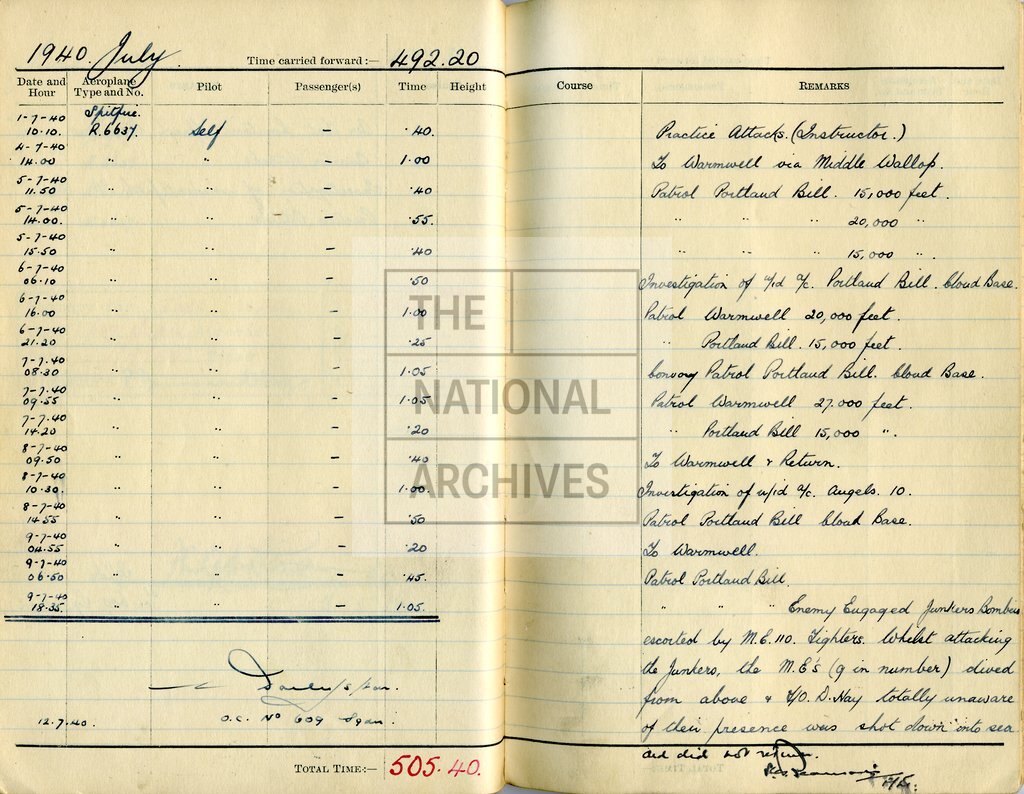 1940. July. Time carried forward :— 492.20
Date and Hour Aeroplane Type and No. Pilot Passenger(s) Time Height Course REMARKS
1-7-40 Spitfire.
10.10. R.6637. Self — .40. Practice Attacks. (Instructor.)
4-7-40
14.00 " " — 1.00 To Warmwell via Middle Wallop.
5-7-40
11.50 " " — .40 Patrol Portland Bill. 15,000 feet.
5-7-40
14.00. " " — .55. " " " 20,000 "
5-7-40
15.50 " " — .40 " " " 15,000 " .
6-7-40
06.10 " " — .50 Investigation of u/id a/c. Portland Bill. Cloud Base.
6-7-40
16.00 " " — 1.00 Patrol Warmwell 20,000 feet.
6-7-40
21.20 " " — .25 " Portland Bill. 15,000 feet.
7-7-40
08.30 " " — 1.05 Convoy Patrol Portland Bill. Cloud Base.
7-7-40
09.55 " " — 1.05 Patrol Warmwell 27,000 feet.
7-7-40
14.20 " " — .20 " Portland Bill 15,000 ".
8-7-40
09.50 " " — .40 To Warmwell & Return.
8-7-40
10.30. " " — 1.00. Investigation of u/id a/c. Angels. 10.
8-7-40
14.55 " " — .50 Patrol Portland Bill Cloud Base.
9-7-40
04.55 " " — .20 To Warmwell.
9-7-40
06.50 " " — .45. Patrol Portland Bill.
9-7-40
18.35. " " — 1.05. " " " Enemy Engaged Junkers Bombers
escorted by M.E. 110. Fighters. Whilst attacking
the Junkers, the M.E's (9 in number) dived
from above & F/O. D. Hay totally unaware
of their presence was shot down into sea
and did not return.
12.7.40. O.C. No 609 Sqdn.
TOTAL TIME:— 505.40.
THE
NATIONAL
ARCHIVES